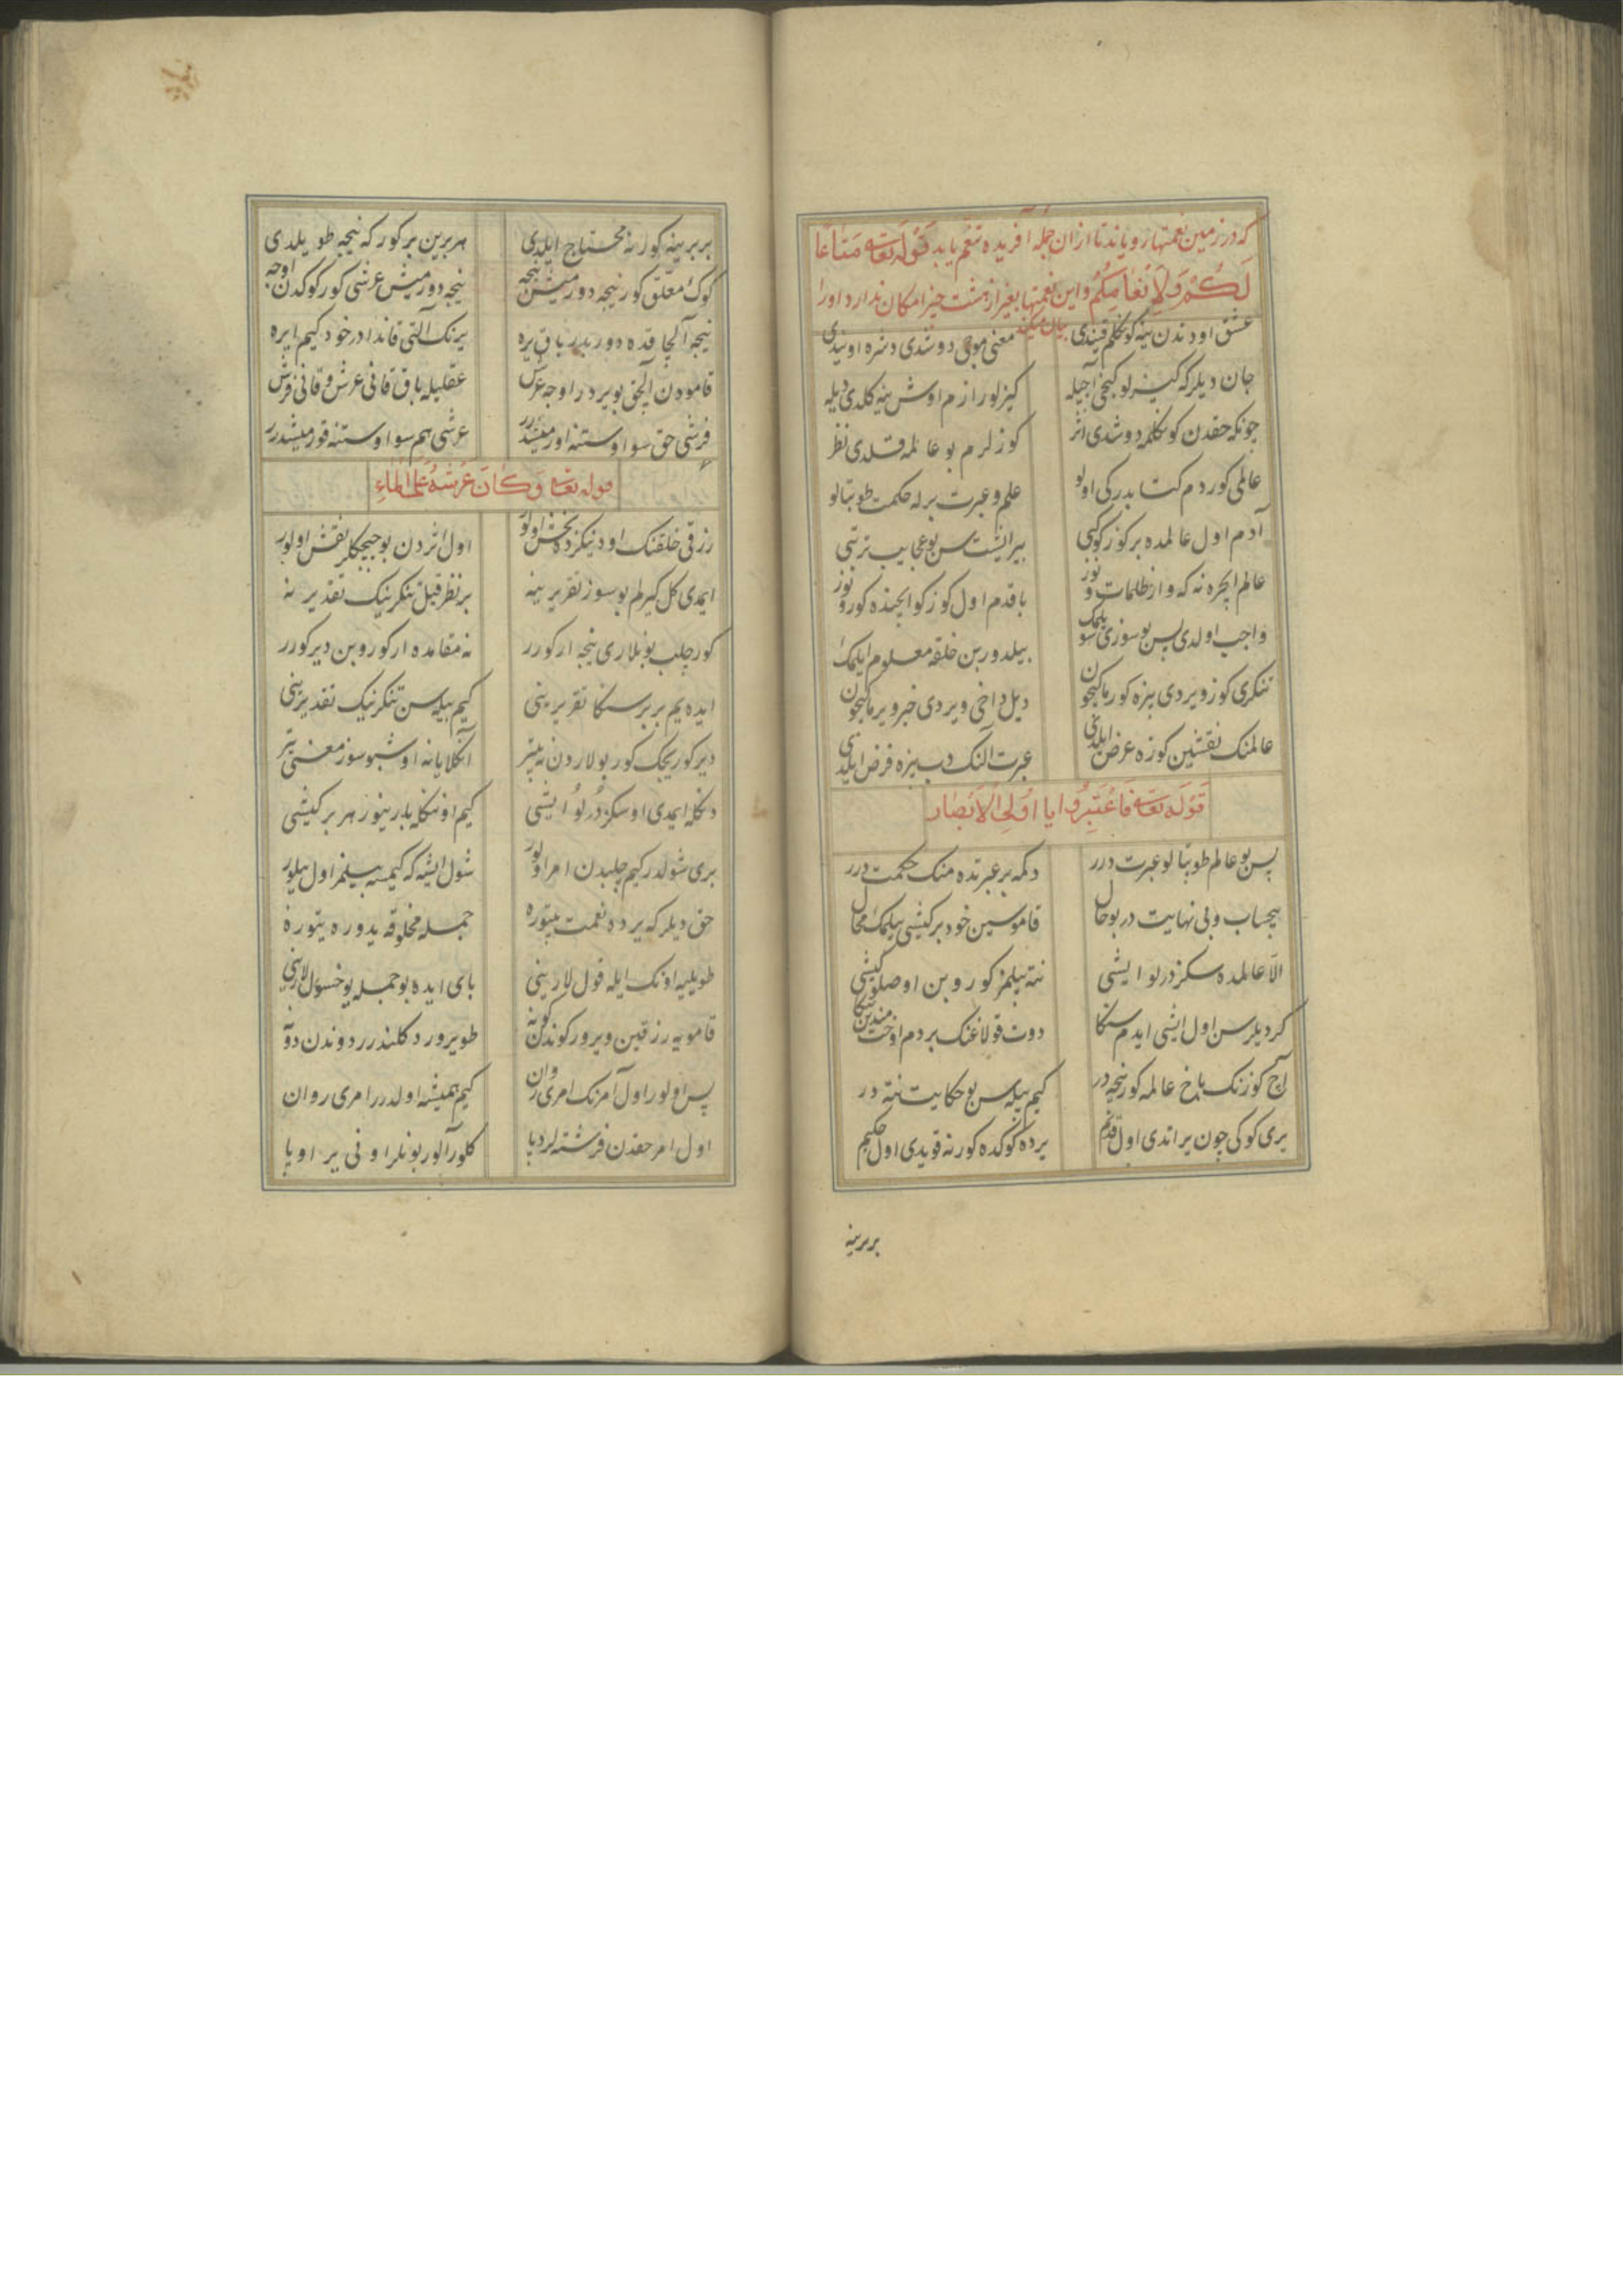 که در زمین نعمتها رویاند تا از ان جمله آفریده تنعم یابد قوله تعالی مَتَاعًا
لَكُمْ وَلِأَنْعَامِكُمْ و این نعمتها بغیر از هشت چیز امکان ندارد اورا
بیان میکند
عشق اودندن ینه کوکلم قیندی معنی موجی دوشدی دشره اوتیدی
جان دیلرکه کیزلو کنجی آچیله کیزلو رازم اوش ینه کلدی دیله
چونکه حقدن کوکلمه دوشدی اثر کوزلرم بو عالمه قلدی نظر
عالمی کوردم کتابدر کی اولو علم و عبرت برله حکمت طوبتالو
آدم اول عالمده بر کوز کیبی بیر ایشتسن بو عجایب ترتیبی
عالم ایچره نه که وار ظلمات و نور باقدم اول کوزکو ایچنده کورونور
واجب اولدی پس بو سوزی سویلمک بیلدورین خلقه معلوم ایلمک
تنکری کوز ویردی بیزه کورماکیچون دیل داخی ویردی خبر ویرماکیچون
عالمنک نقشین کوزه عرض ایلدی عبرت آلنک دب بیزه فرض ایلدی
قوله تعالی فَاعْتَبِرُوا یا اُولِی الْاَبْصَار
پس بو عالم طوبتالو عبرت درر دکمه بر عبرتده منک حکمت درر
بیحساب و بی نهایت در بو حال قاموسین خود بر کیشی بیلمک محال
الا عالمده سکز درلو ایشی نته بیلمز کوروبن اوصلو کیشی
کر دیلرسن اول ایشی ایدم سنکا دوت قولاغنک بر دم اوخت مندین ینکا
آچ کوزنک باخ عالمه کور نیجه در کیم بیله سن بو حکایت نته در
یری کوکی چون یراتدی اول قدیم یرده کوکده کور نه قویدی اول حکیم
بر برینه
بر برینه کور نه محتاج ایلدی هر برین بر کور که نیجه طویلدی
کوک معلق کور نیجه دورمیش نیجه نیجه دورمیش عرشی کور کوکدن اوجه
نیجه آلچاقده دوربدر باق یره یرنک آلتی قاندادر خود کیم ایره
قامودن آلچق بویردر اوجه عرش عقلیله باق قانی عرش و قانی فرش
فرشی حق سو اوستنه اورمیشدرر عرشی هم سو اوستنه قورمیشدرر
قوله تعالی وَكَانَ عَرْشُهُ عَلَى الْمَاءِ
رزقی خلقنک اودنیکزده بخش اولور اول اثردن بو چیچکلر نقش اولور
ایمدی کل کیرلم بو سوز تقریرینه بر نظر قیل تنکرینک تقدیرینه
کور چلب بونلاری نیجه ارکورر نه مقامده ارکوروبن دیرکورر
ایده یم بر بر سنکا تقریرینی کیم بیله سن تنکرینک تقدیرینی
دیرکوریجک کور بولاردن نه بیتر آنکلایانه اوشبو سوز معنی یتر
دنکله ایمدی او سکز درلو ایشی کیم اونکا یارینور هر بر کیشی
بری شولدر کیم چلبدن امر اولور شول ایشه که کیمسه بیلمز اول بیلور
حق دیلر که یرده نعمت بیتوره جمله مخلوقه یدوره یتوره
طویلیه اونک ایله قول لارینی بای ایده بو جمله یوخسول لارینی
قامویه رزقین ویرور کوندن کونه طویرور دکلندرر دوندن دونه
پس اولور اول آمرنک امری روان کیم همیشه اولدرر امری روان
اول امر حقدن فرشته لردیا کلور آلور بونلر اونی یر اویا